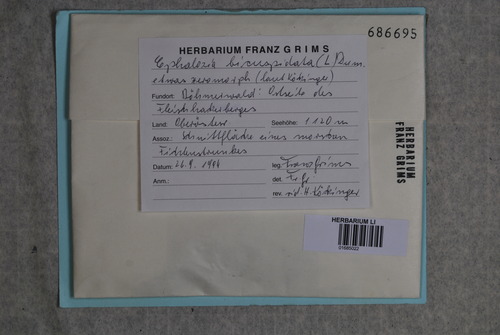 686695
HERBARIUM FRANZ GRIMS
Cephalozia bicuspidata (L.) Dum.
etwas xeromorph (laut Köckinger)
Fundort: Böhmerwald: Ostseite des
Fleischhackerberges
Land: Oberösterr Seehöhe: 1120 m
Assoz.: Schnittfläche eines morschen
Fichtenstrunkes
Datum: 26.9. leg. Franz Grims
Anm.: det. Gr.
rev. H. Köckinger
HERBARIUM
FRANZ GRIMS
HERBARIUM LI
01685022